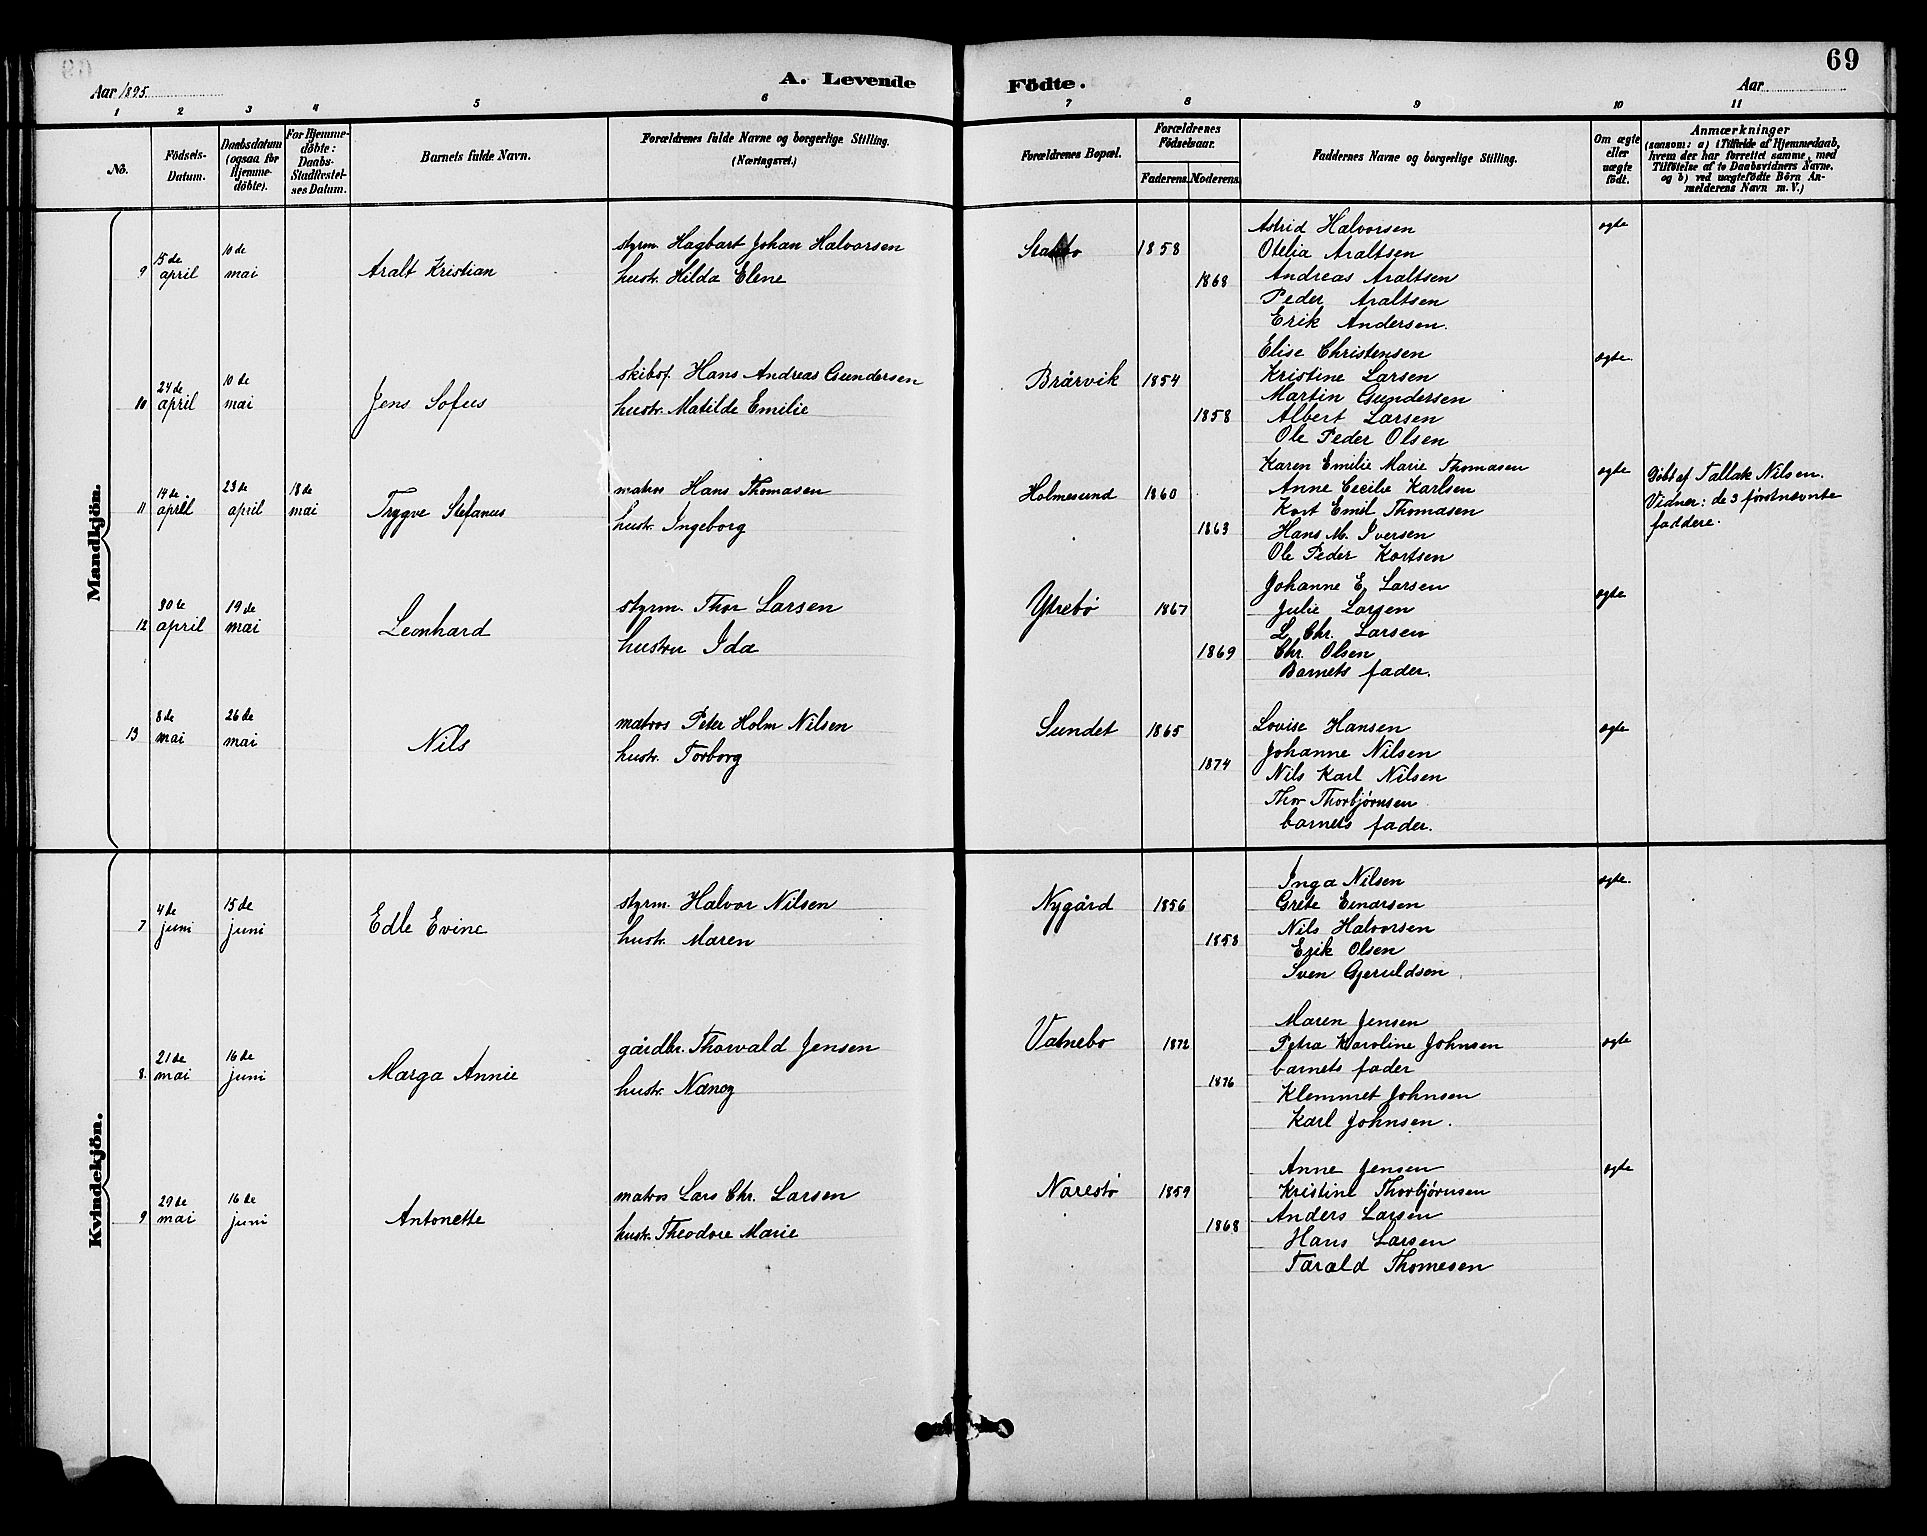 69
Aar 1895.
A. Levende
Födte.
Aar
1 2 3 4 5 6 7 8 9 10 11
No.
Födsels-
Datum.
Daabsdatum
(ogsaa for
Hjemme-
döbte).
For Hjemme-
döbte:
Daabs-
Stadfæstel-
ses Datum.
Barnets fulde Navn.
Forældrenes fulde Navne og borgerlige Stilling.
(Næringsvei.)
Forældrenes Bopæl.
Forældrenes
Födselsaar.
Faderens.
Moderens.
Faddernes Navne og borgerlige Stilling.
Om ægte
eller
uægte
födt.
Anmærkninger
(saasom: a) i Tilfælde af Hjemmedaab,
hvem der har forrettet samme, med
Tilföielse af to Daabsvidners Navne.
og b) ved uægtefödte Börn An-
melderens Navn m. V.)
Mandkjön.
9
15de
april
10de
mai
Aralt Kristian
styrm. Hagbart Johan Halvorsen
hustr. Hilda Elene
1858
1868
Astrid Halvorsen
Otelia Araltsen
Andreas Araltsen
Peder Araltsen
Erik Andersen.
ægte
10
24de
april
10de
mai
Jens Sofus
skibsf. Hans Andreas Gundersen
hustr. Matilde Emilie
Brårvik
1854
1858
Elise Christensen
Kristine Larsen
Martin Gundersen
Albert Larsen
Ole Peder Olsen
ægte.
11
14de
april
23de
april
18de
mai
Trygve Stefanus
matros Hans Thomasen
hustr. Ingeborg
Holmesund
1860
1863
Karen Emilie Marie Thomasen
Anne Cecilie Karlsen
Kort Emil Thomasen
Hans M. Iversen
Ole Peder Kortsen
ægte
Döbt af Tallak Nilsen.
Vidner: de 3 förstnevnte
faddere.
12
30te
april
19de
mai
Leonhard
styrm. Thor Larsen
hustru Ida
Ytrebø
1867
1869
Johanne E. Larsen
Julie Larsen
L. Chr. Larsen
Chr. Olsen
Barnets fader.
ægte
13
8de
mai
26de
mai
Nils
matros Peter Holm Nilsen
hustr. Torborg
Sundet
1865
1874
Lovise Hansen
Johanne Nilsen
Nils Karl Nilsen
Thor Thorbjørnsen
barnets fader.
ægte
Kvindekjön.
7
4de
juni
15de
juni
Edle Evine
styrm. Halvor Nilsen
hustr. Maren
Nygård
1856
1858
Inga Nilsen
Grete Einarsen
Nils Halvorsen
Erik Olsen
Sven Gjeruldsen.
ægte.
8.
21de
mai
16de
juni
Marga Annie
gårdbr. Thorvald Jensen
hustr. Nancy
Vatnebo
1872
1876
Maren Jensen
Petra Karoline Johnsen
barnets fader
Klemmet Johnsen
Karl Johnsen.
ægte
9
29de
mai
16de
juni
Antonette
matros Lars Chr. Larsen
hustr. Theodore Marie
Narestø
1859
1868
Anne Jensen
Kristine Thorbjørnsen
Anders Larsen
Hans Larsen
Tarald Thomesen
ægte